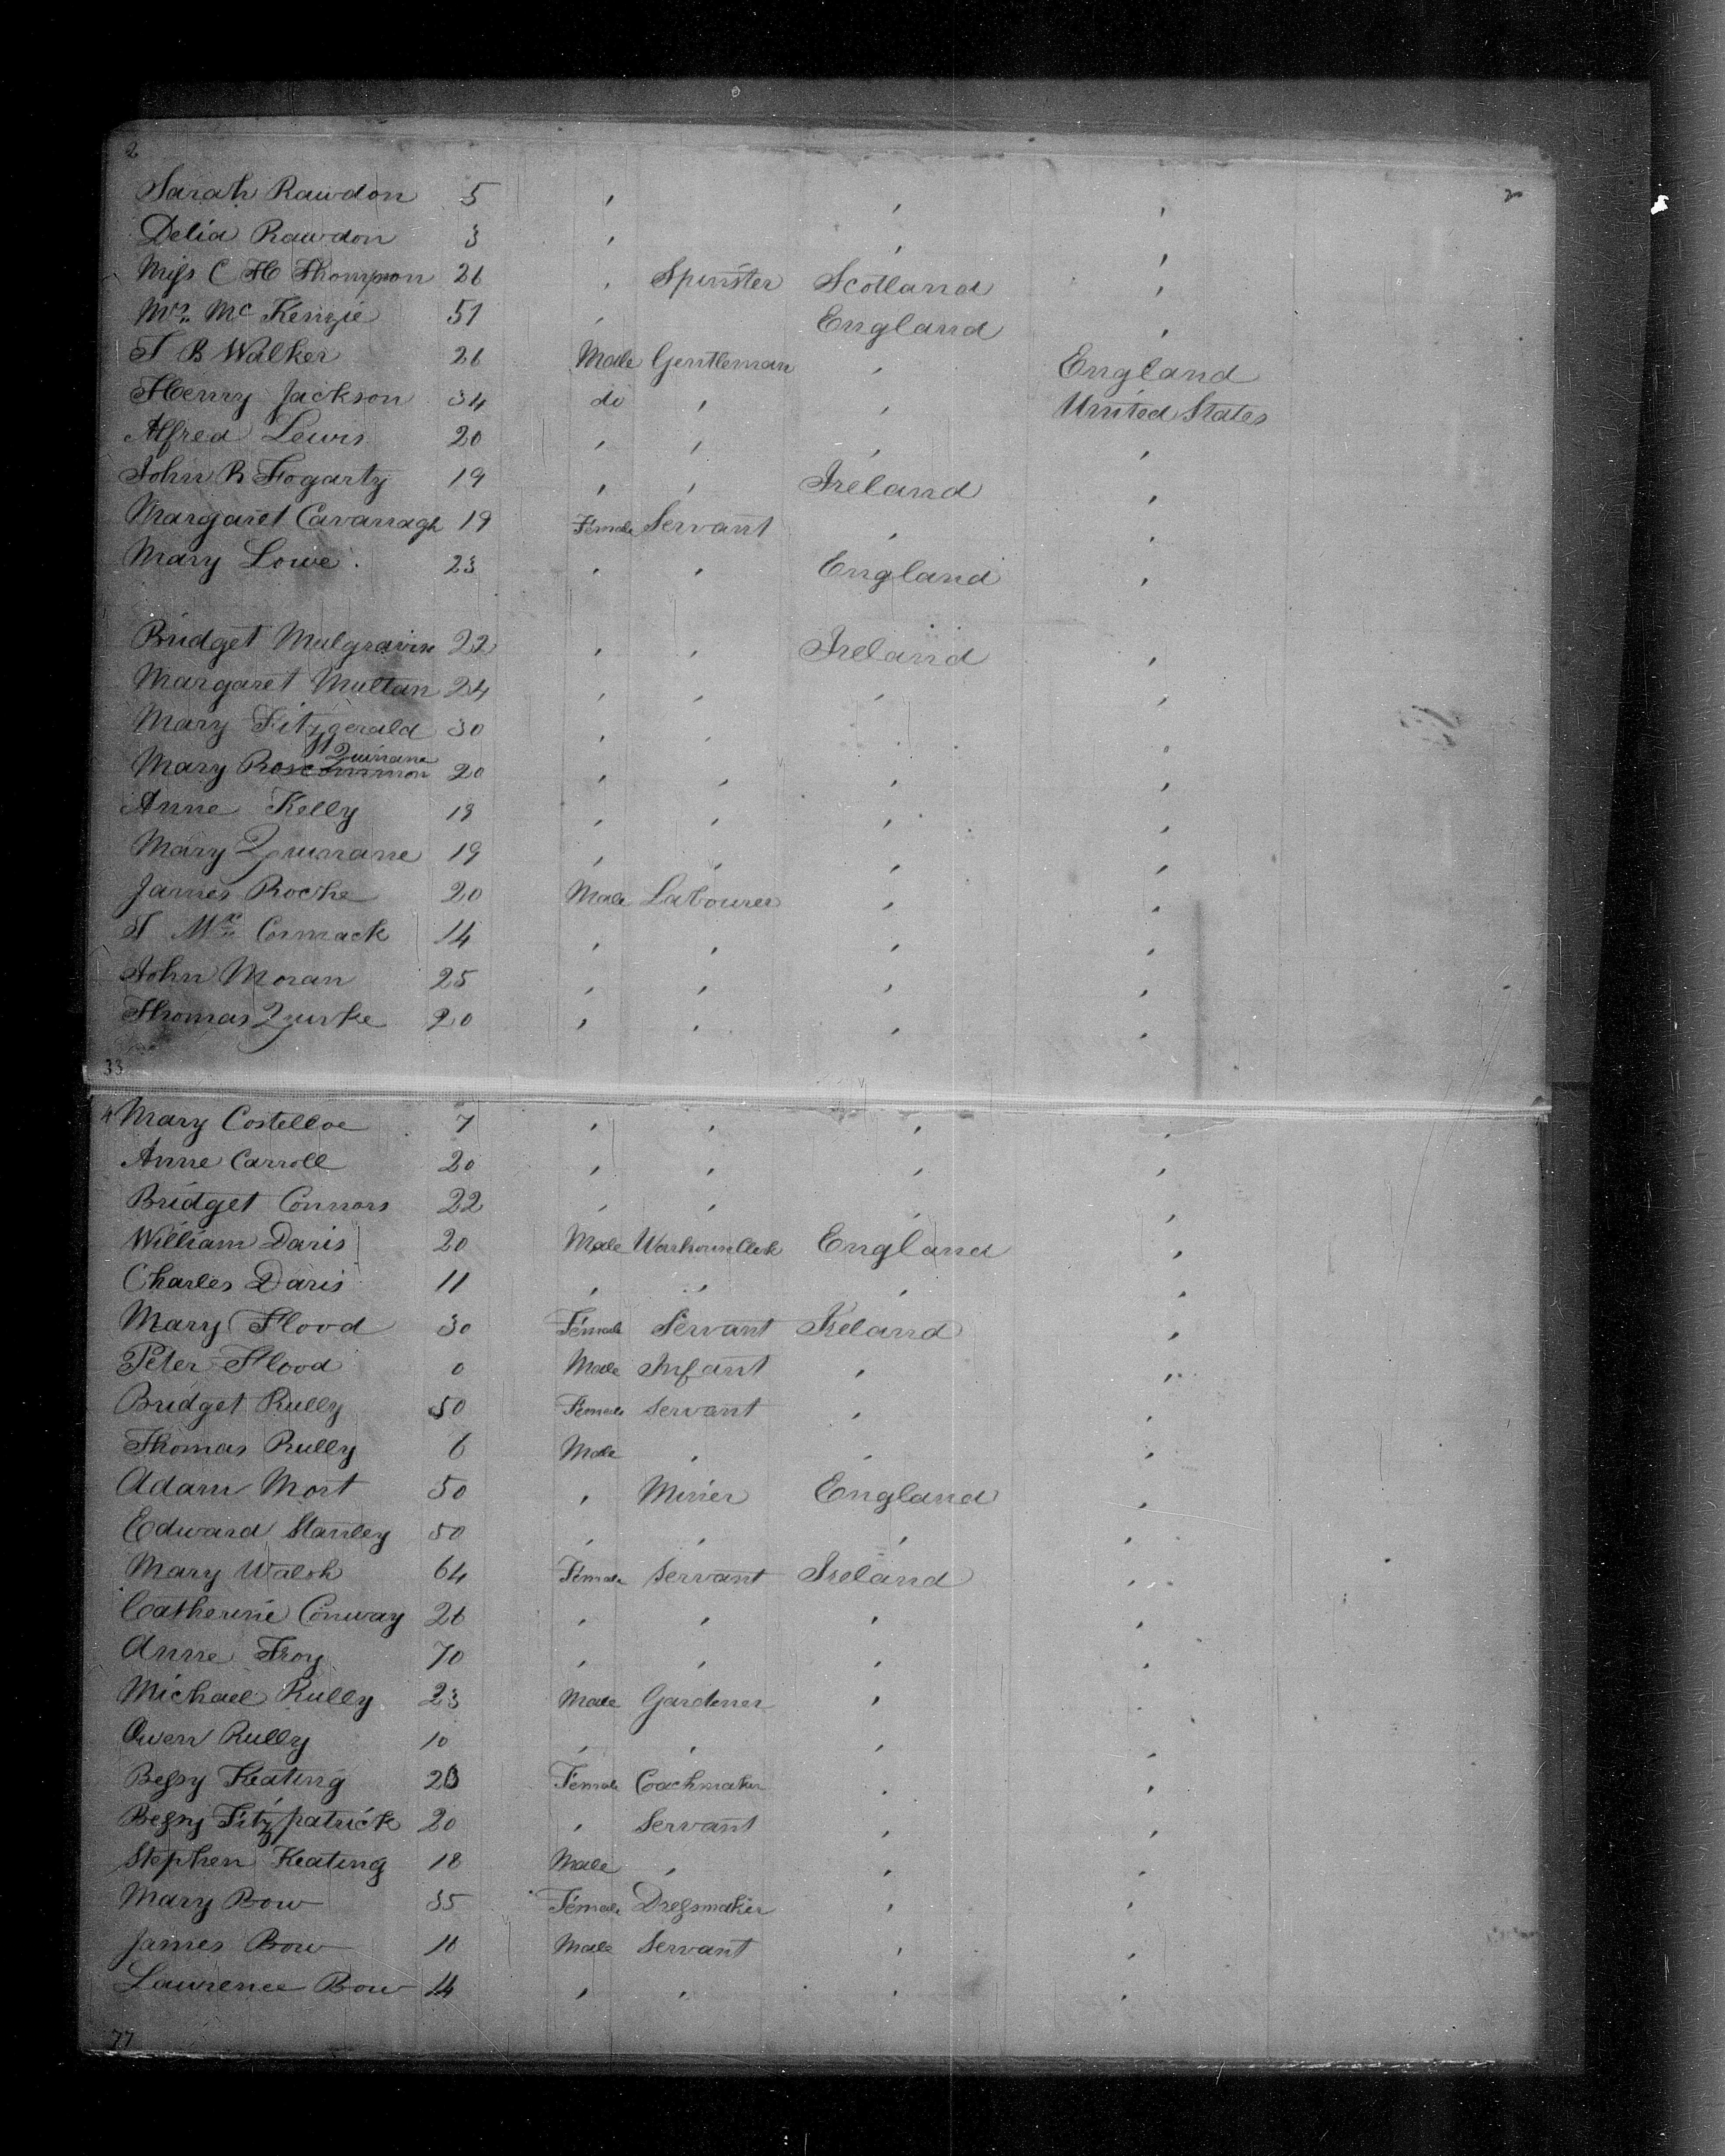 2
Sarah Rawdon 5 " " "
Delia Rawdon 3 " " "
Miss C H Thompson 26 " Spinster Scotland "
Mrs. Mc Kenzie 51 " England "
T B Walker 26 Male Gentleman " England
Henry Jackson 34 do " " United States
Alfred Lewis 20 " " " "
John R Fogarty 19 " " Ireland "
Margaret Cavanagh 19 Female Servant " "
Mary Lowe 23 " " England "
Bridget Mulgravin 22 " " Ireland "
Margaret Multan 24 " " " "
Mary Fitzgerald 30 " " " "
Quinane
Mary Roscommon 20 " " " "
Anne Kelly 18 " " " "
Mary Quinane 19 " " " "
James Roche 20 Male Labourer " "
T Mc Cormack 14 " " " "
John Moran 25 " " " "
Thomas Quirke 20 " " " "
33
4 Mary Costelloe 7 " " " "
Anne Carroll 20 " " " "
Bridget Connors 22 " " " "
William Davis 20 Male England "
Charles Davis 11 " " " "
Mary Flood 30 Female Servant Ireland "
Peter Flood 0 Male Infant " "
Bridget Rully 50 Female Servant " "
Thomas Rully 6 Male " " "
Adam Mort 50 " Miner England "
Edward Stanley 50 " " " "
Mary Walsh 64 Female Servant Ireland "
Catherine Conway 26 " " " "
Anne Troy 70 " " " "
Michael Rully 23 Male Gardener " "
Owen Rully 10 " " " "
Bessy Keating 23 Female Coachmaker " "
Bessy Fitzpatrick 20 " Servant " "
Stephen Keating 18 Male " " "
Mary Bow 35 Female Dressmaker " "
James Bow 16 Male Servant " "
Lawrence Bow 14 " " " "
77